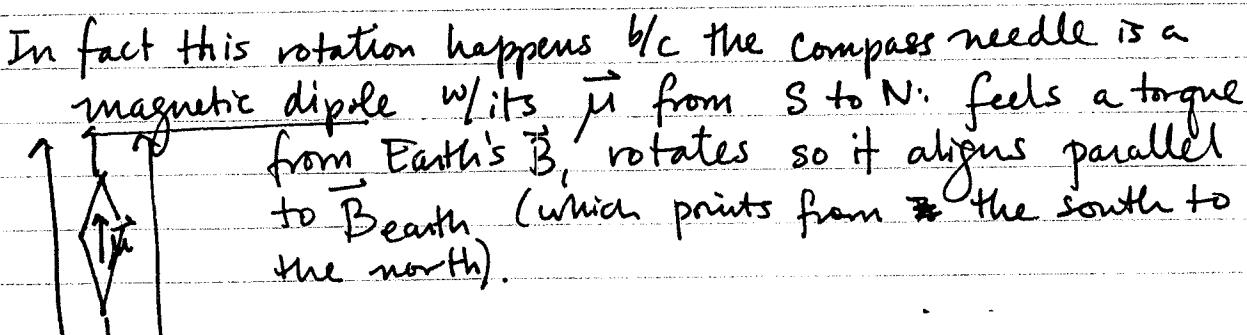 In fact this rotation happens b/c the compass needle is a
magnetic dipole w/its μ⃗ from S to N: feels a torque
from Earth's B⃗, rotates so it aligns parallel
to B⃗earth (which points from the south to
the north).
μ⃗